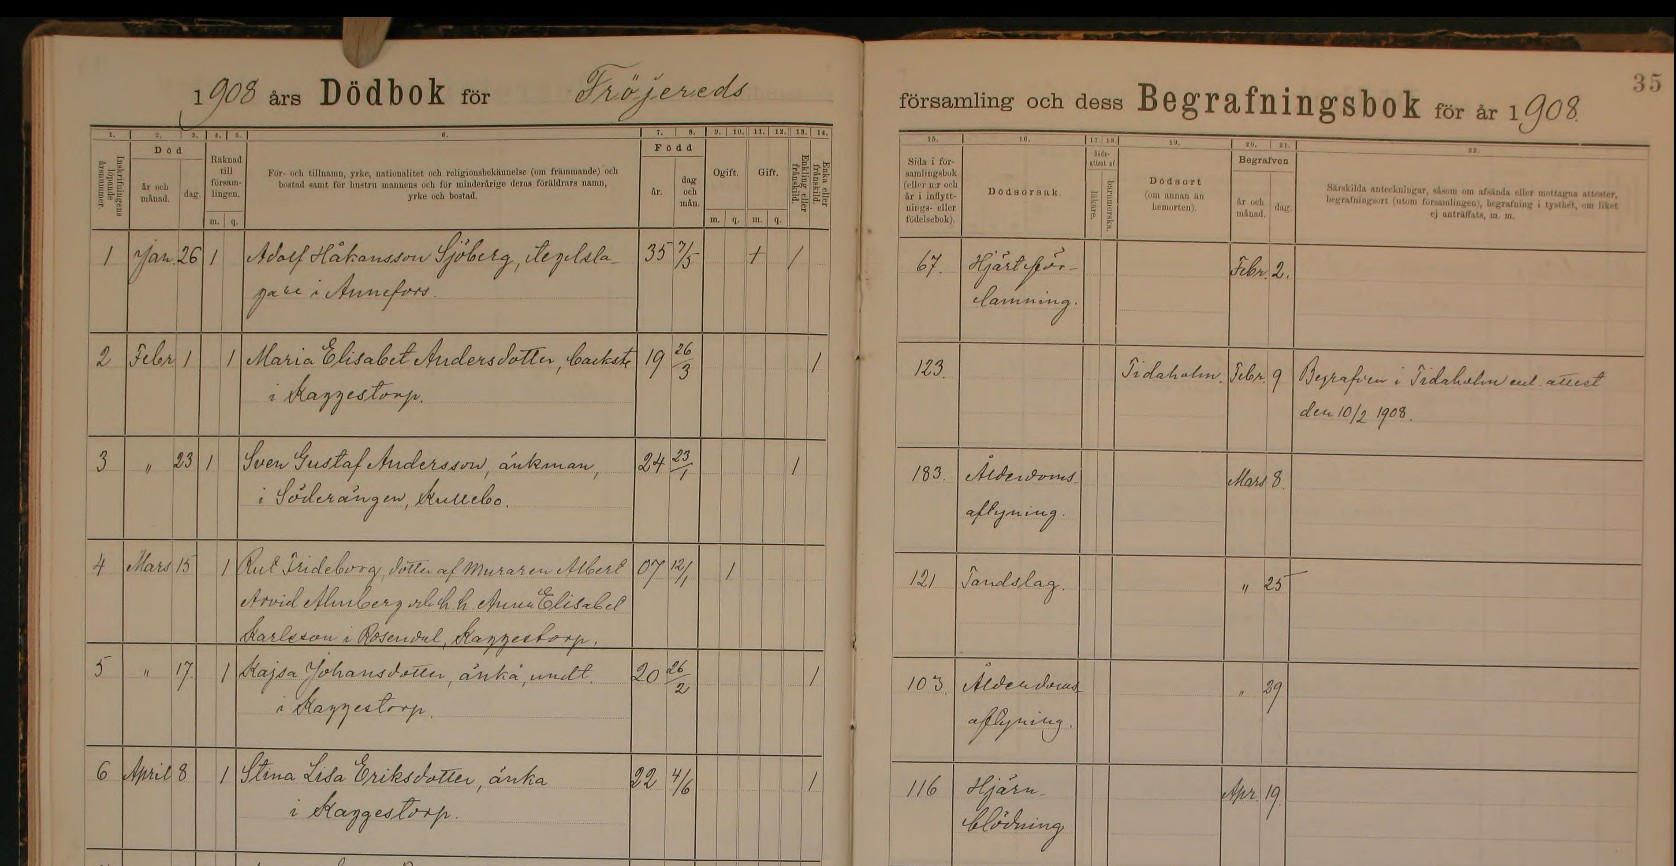 35
1908 års Dödbok för Fröjereds
församling och dess Begrafningsbok för år 1908.
1. 2. 3. 4. 5. 6. 7. 8. 9. 10. 11. 12. 13. 14.
Inskrifningens löpande årsnummer.
Död
år och månad.
dag.
Räknad till församlingen.
m. q.
För- och tillnamn, yrke, nationalitet och religionsbekännelse (om främmande) och
bostad samt för hustru mannens och för minderårige deras föräldrars namn,
yrke och bostad.
Född
år.
dag och mån.
Ogift.
m. q.
Gift.
m. q.
Enkling eller frånskild.
Enka eller frånskild.
15. 16. 17. 18. 19. 20. 21. 22.
Sida i för-
samlingsbok
(eller n:r och
år i inflytt-
nings- eller
födelsebok).
Dödsorsak.
läkare.
barnmorska.
Dödsort
(om annan än
hemorten).
Begrafven
år och månad.
dag.
Särskilda anteckningar, såsom om afsända eller mottagna attester,
begrafningsort (utom församlingen), begrafning i tysthet, om liket
ej anträffats, m. m.
1 Jan. 26 1 Adolf Håkansson Sjöberg, tegelsla- 35 7/5 + / 67. Hjärtför- Febr. 2.
gare i Annefors. lamning.
2 Febr 1 1 Maria Elisabet Andersdotter, backst. 19 26/3 1 123. Tidaholm. Febr. 9 Begrafven i Tidaholm enl. attest
i Kaggestorp. den 10/2 1908.
3 " 23 1 Sven Gustaf Andersson, änkman, 24 23/1 1 183. Ålderdoms- Mars 8.
i Söderängen, Kullebo. aftyning.
4 Mars 15 1 Rut Frideborg, dotter af Muraren Albert 07 12/1 1 121 Tandslag. " 25
Arvid Almberg och h. h. Anna Elisabet
Karlsson i Rosendal, Kaggestorp.
5 " 17. 1 Kajsa Johansdotter, änka, undt. 20 26/2 1 103. Ålderdoms- " 29
i Kaggestorp. aftyning.
6 April 8 1 Stina Lisa Eriksdotter, änka 22 4/6 1 116 Hjärn- Apr. 19.
i Kaggestorp. blödning